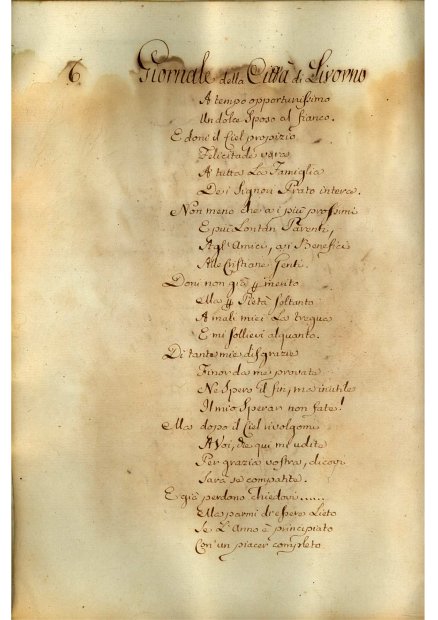 6 Giornale della Città di Livorno
A tempo opportunissimo
Un dolce Sposo al fianco.
E doni il Ciel propizio
Felicitade vera
A tutta La Famiglia
De i Signori Prato intera.
Non meno che a i più prossimi
E più Lontan Parenti,
Agl' Amici, a i Benefici
Alle Cristiane Genti.
Doni non già merito
Ma Pietà soltanto
A mali miei La tregua
E mi sollievi alquanto.
Di tante mie disgrazie
Finor da me provate
Ne Spero il fin, ma inutile
Il mio Sperar non fate!
Ma dopo il Ciel rivolgomi
A Voi, che qui m' udite
Per grazia vostra, dicovi
Sarà se compatite.
E già perdono chiedovi......
Ma parmi d' essere Lieto
Se L' Anno è principiato
Con' un piacer completo.